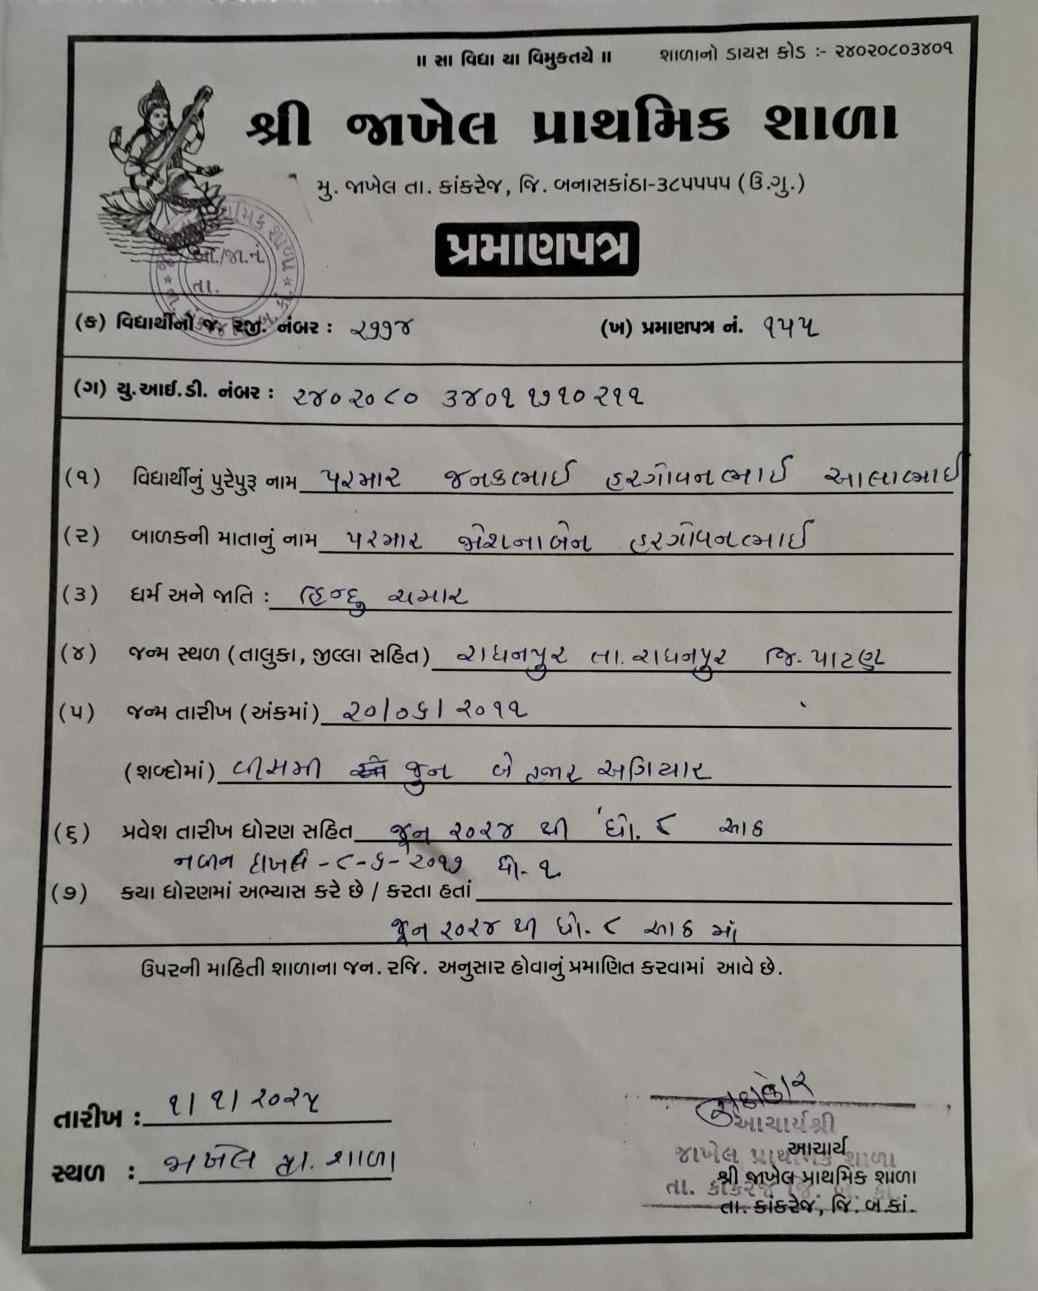 ॥ સા વિદ્યા યા વિમુક્તયે ॥ શાળાનો ડાયસ કોડ :- ૨૪૦૨૦૮૦૩૪૦૧
શ્રી જાખેલ પ્રાથમિક શાળા
મુ. જાખેલ તા. કાંકરેજ, જિ. બનાસકાંઠા-૩૮૫૫૫૫ (ઉ.ગુ.)
પ્રમાણપત્ર
(ક) વિદ્યાર્થીનો જ. રજી. નંબર : ૨૧૧૪ (ખ) પ્રમાણપત્ર નં. ૧૫૫
(ગ) યુ.આઈ.ડી. નંબર : ૨૪૦૨૦૮૦ ૩૪૦૧ ૧૭૧૦૨૧૧
(૧) વિદ્યાર્થીનું પુરેપુરૂ નામ પરમાર જનકભાઈ હરગોવનભાઈ આલાભાઈ
(૨) બાળકની માતાનું નામ પરમાર જોશનાબેન હરગોવનભાઈ
(૩) ધર્મ અને જાતિ : હિન્દુ ચમાર
(૪) જન્મ સ્થળ (તાલુકા, જીલ્લા સહિત) રાધનપુર તા. રાધનપુર જિ. પાટણ
(૫) જન્મ તારીખ (અંકમાં) ૨૦/૦૬/૨૦૧૧
(શબ્દોમાં) વીસમી જુન બે હજાર અગિયાર
(૬) પ્રવેશ તારીખ ધોરણ સહિત જૂન ૨૦૨૪ થી ધો. ૮ આઠ
દાખલ - ૮-૬-૨૦૧૭ ધો- ૧
(૭) કયા ધોરણમાં અભ્યાસ કરે છે / કરતા હતાં
જૂન ૨૦૨૪ થી ધો. ૮ આઠ માં
ઉપરની માહિતી શાળાના જન. રજિ. અનુસાર હોવાનું પ્રમાણિત કરવામાં આવે છે.
તારીખ : ૧/૧/૨૦૨૫
સ્થળ : જાખેલ પ્રા. શાળા
આચાર્યશ્રી
જાખેલ પ્રાથમિક શાળા
આચાર્ય
શ્રી જાખેલ પ્રાથમિક શાળા
તા. કાંકરેજ, જિ. બ.કાં.